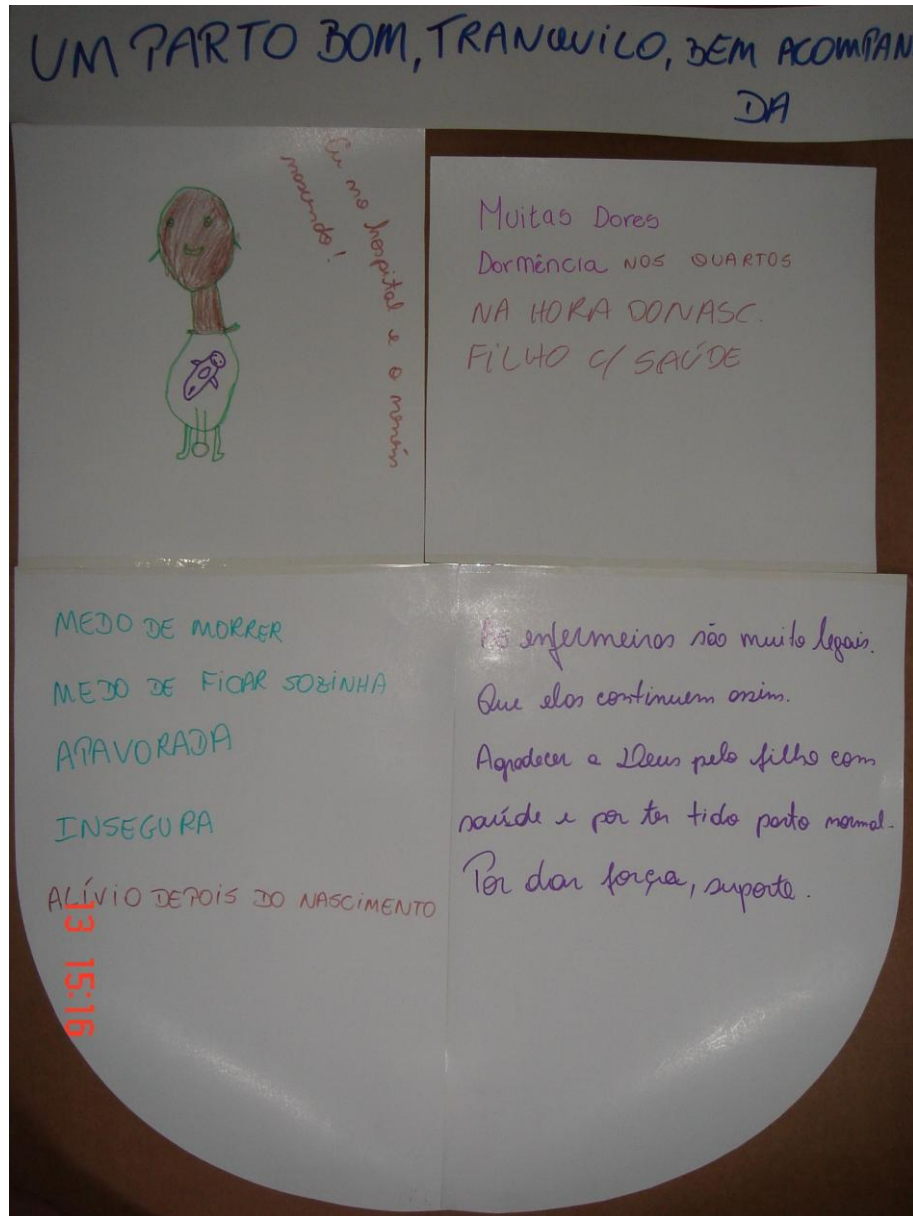 UM PARTO BOM, TRANQUILO, BEM ACOMPAN
DA
Eu no hospital e o neném
nascendo!
Muitas Dores
Dormência NOS QUARTOS
NA HORA DO NASC.
FILHO C/ SAÚDE
MEDO DE MORRER
MEDO DE FICAR SOZINHA
APAVORADA
INSEGURA
ALÍVIO DEPOIS DO NASCIMENTO
enfermeiros são muito legais.
Que elas continuem assim.
Agradecer a Deus pelo filho com
saúde e por ter tido parto normal.
Por dar força, suporte.
13 15:16